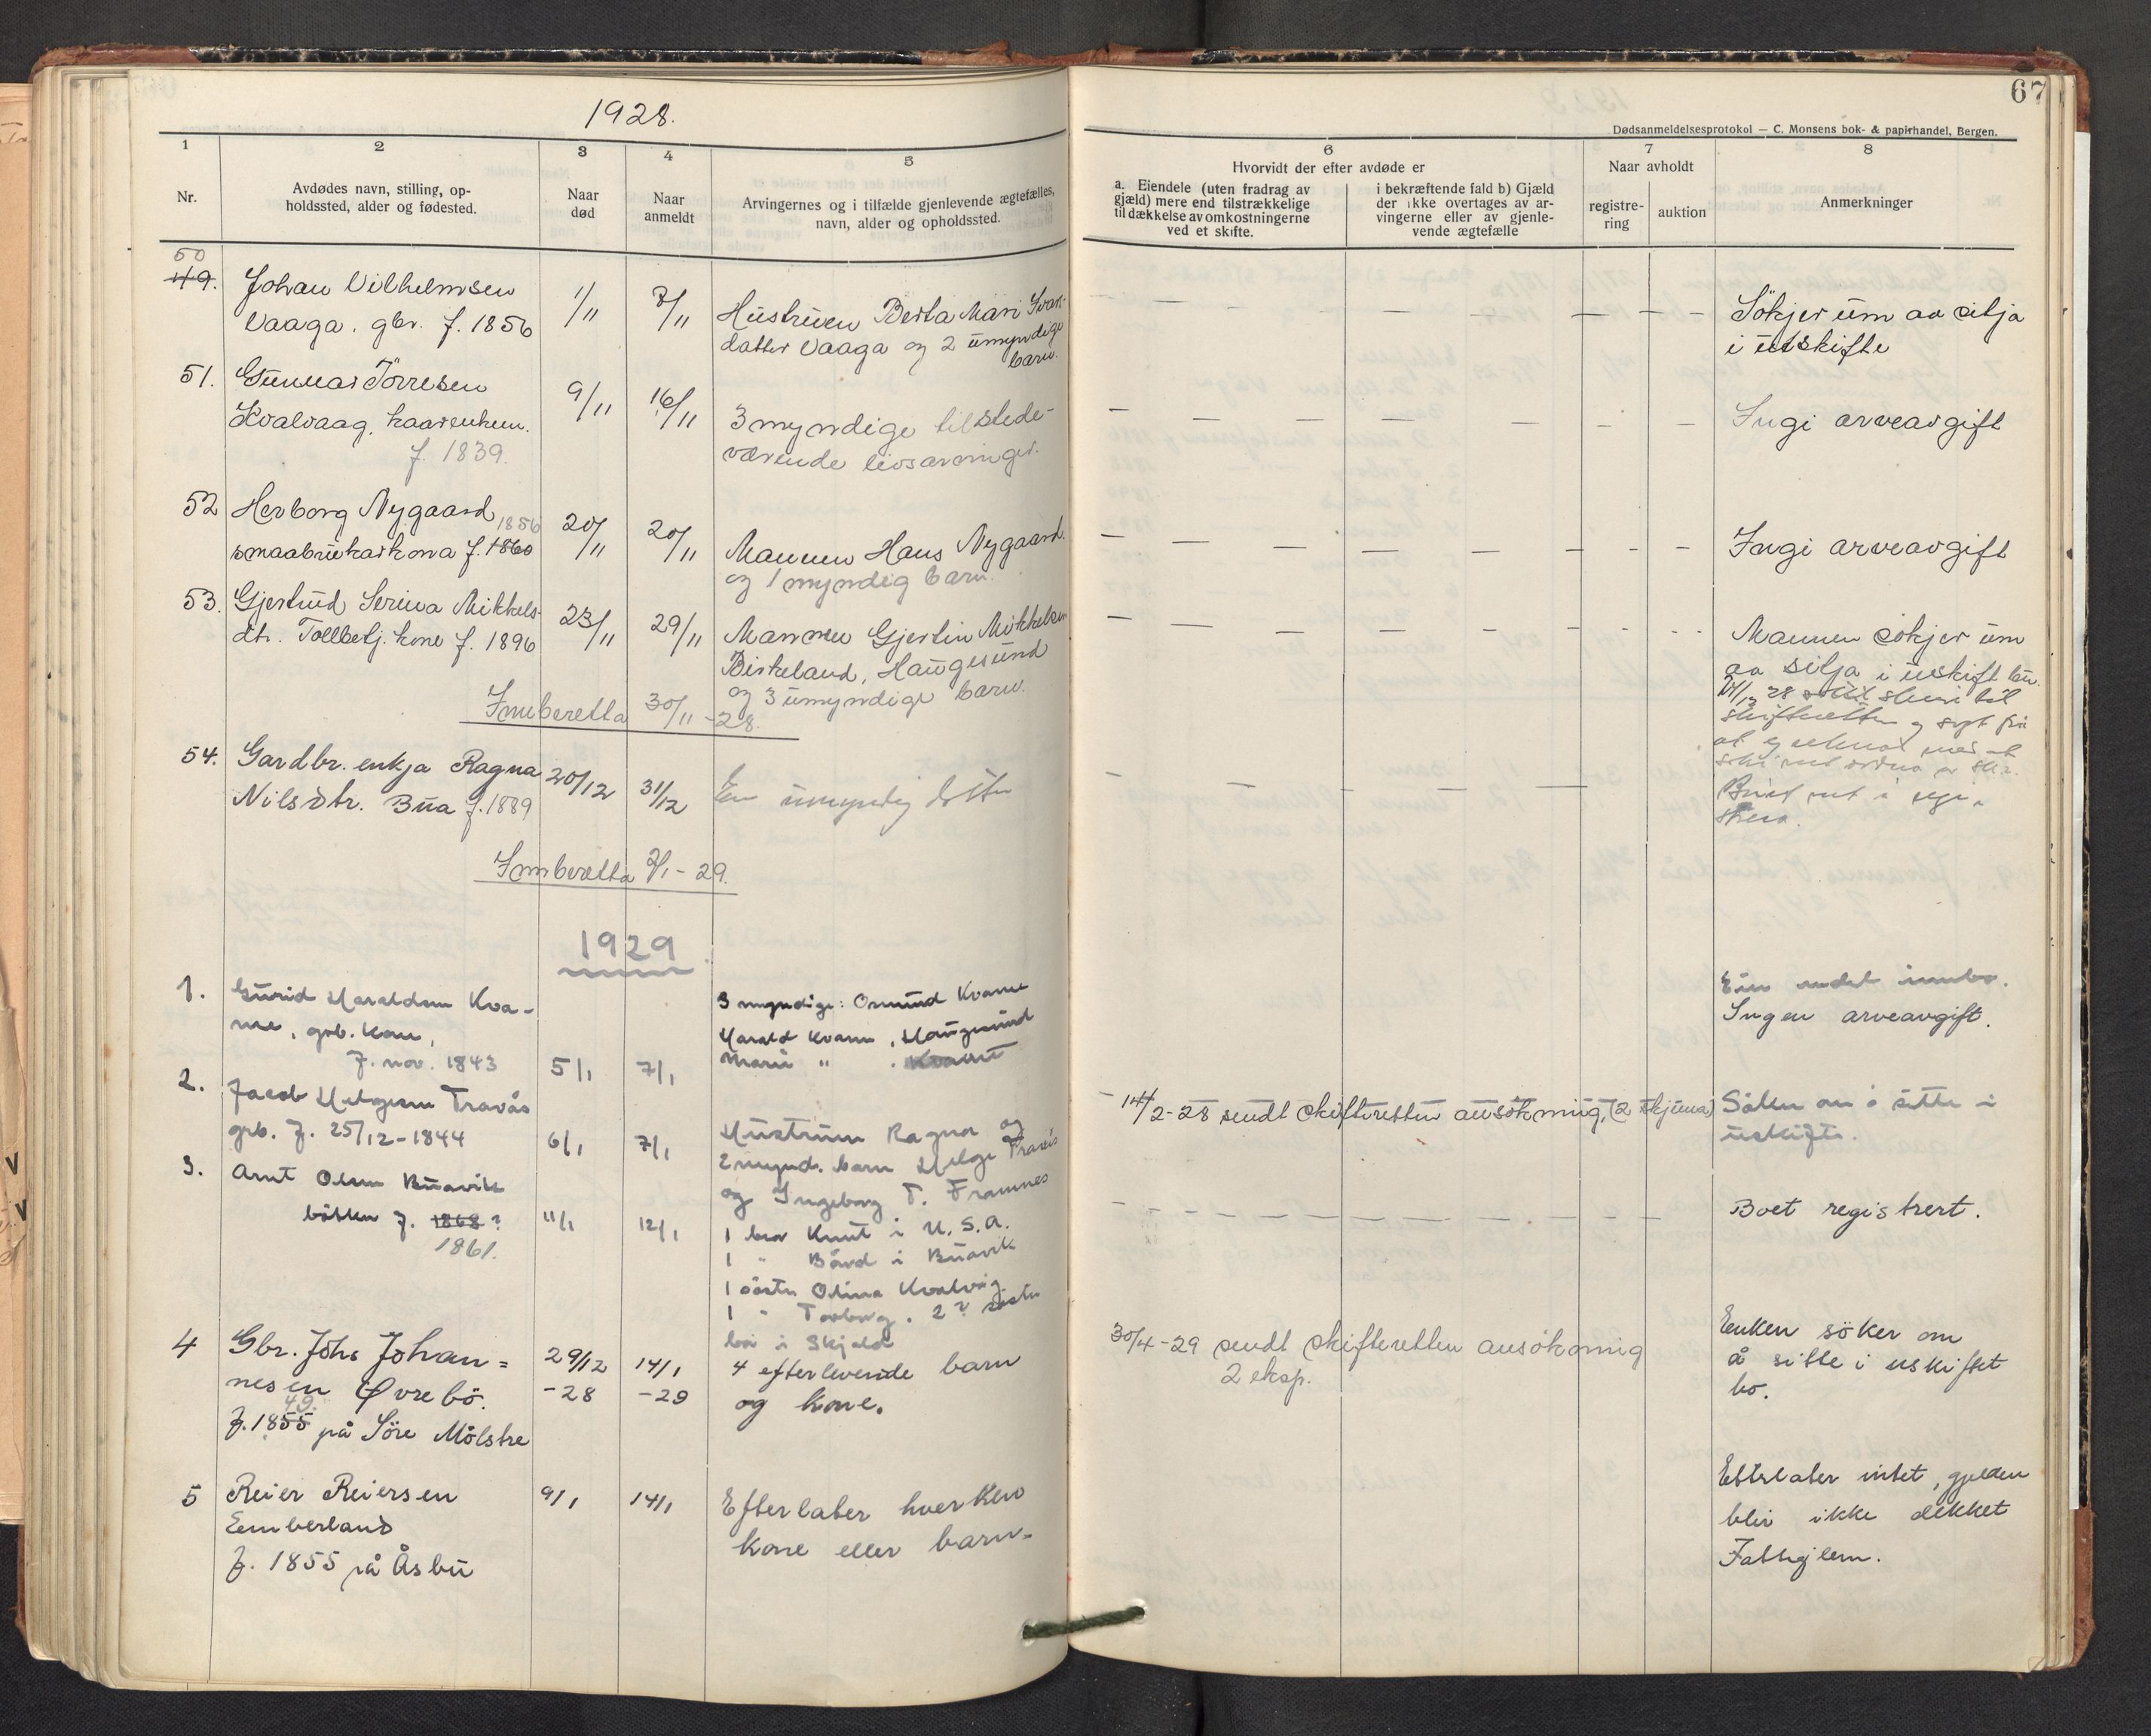 1928.
67
Dødsanmeldelsesprotokol — C. Monsens bok- & papirhandel, Bergen.
1
2
3
4
5
6
7
8
Nr.
Avdødes navn, stilling, op-
holdssted, alder og fødested.
Naar
død
Naar
anmeldt
Arvingernes og i tilfælde gjenlevende ægtefælles,
navn, alder og opholdssted.
Hvorvidt der efter avdøde er
a. Eiendele (uten fradrag av
gjæld) mere end tilstrækkelige
til dækkelse av omkostningerne
ved et skifte.
i bekræftende fald b) Gjæld
der ikke overtages av ar-
vingerne eller av gjenle-
vende ægtefælle
Naar avholdt
registre-
ring
auktion
Anmerkninger
50
49.
Johan Vilhelmsen
Vaaga. gbr. f. 1856
1/11
7/11
Hustruen Berta Mari Svan-
datter Vaaga og 2 umyndige
barn.
Sökjer um aa sitja
i uskifte
51.
Gunnar Törresen
Kvalvaag, kaarenkem.
f. 1839.
9/11
16/11
3 myndige tilstede-
værende livsarvinger.
Ingi arveavgift
52
Herborg Nygaard 1856
smaabrukarkona f. 1860
20/11
20/11
Mannen Hans Nygaard.
og 1 myndig barn.
Ingi arveavgift
53.
Gjertrud Serina Mikkels-
dtr. Tollbetj. kone f. 1896
23/11
29/11
Mannen Gjertin Mikkelsen
Birkeland, Haugesund
og 3 umyndige barn.
Mannen sökjer um
aa sitja i uskift bu.
Innberetta 30/11-28.
54.
Gardbr. enkja Ragna
Nilsdtr. Bua f. 1889
20/12
31/12
En umyndig dotter
Innberetta 2/1-29.
1929
1.
Gurid Haraldsen Kva-
me, grb. kone,
f. nov. 1843
5/1
7/1
3 myndige: Osmund Kvame
Harald Kvame, Haugesund
Marie " . Kvame
Ingen arveavgift.
2.
Jacob Helgesen Travås
grb. f. 25/12-1844
6/1
7/1
Hustruen Ragna og
2 mynd. barn Helge Travås
og Ingeborg T. Framnes
14/2-28 sendt skifteretten ansökning, (2 skjema)
Söker om å sitte i
uskifte.
3.
Arnt Olsen Buavik
bökker f. 1868?
1861.
11/1
12/1
1 bror Knut i U.S.A.
1 " Bård i Buavik
1 söster Olina Kvalvåg
1 " Torborg. 2? søster
bor i Skjold
Boet registrert.
4
Gbr. Johs Johan=
nesen Øvrebö.
49.
f. 1855 på Söre Mölstre
29/12
-28
14/1
-29
4 efterlevende barn
og kone.
30/4-29 sendt skifteretten ansökning
2 eksp.
Enken söker om
å sitte i uskiftet
bo.
5
Reier Reiersen
Emberland
f. 1855 på Åsbu
9/1
14/1
Efterlater hverken
kone eller barn.
Efterlater intet, gjelden
blir ikke dekket
Fattiglem.